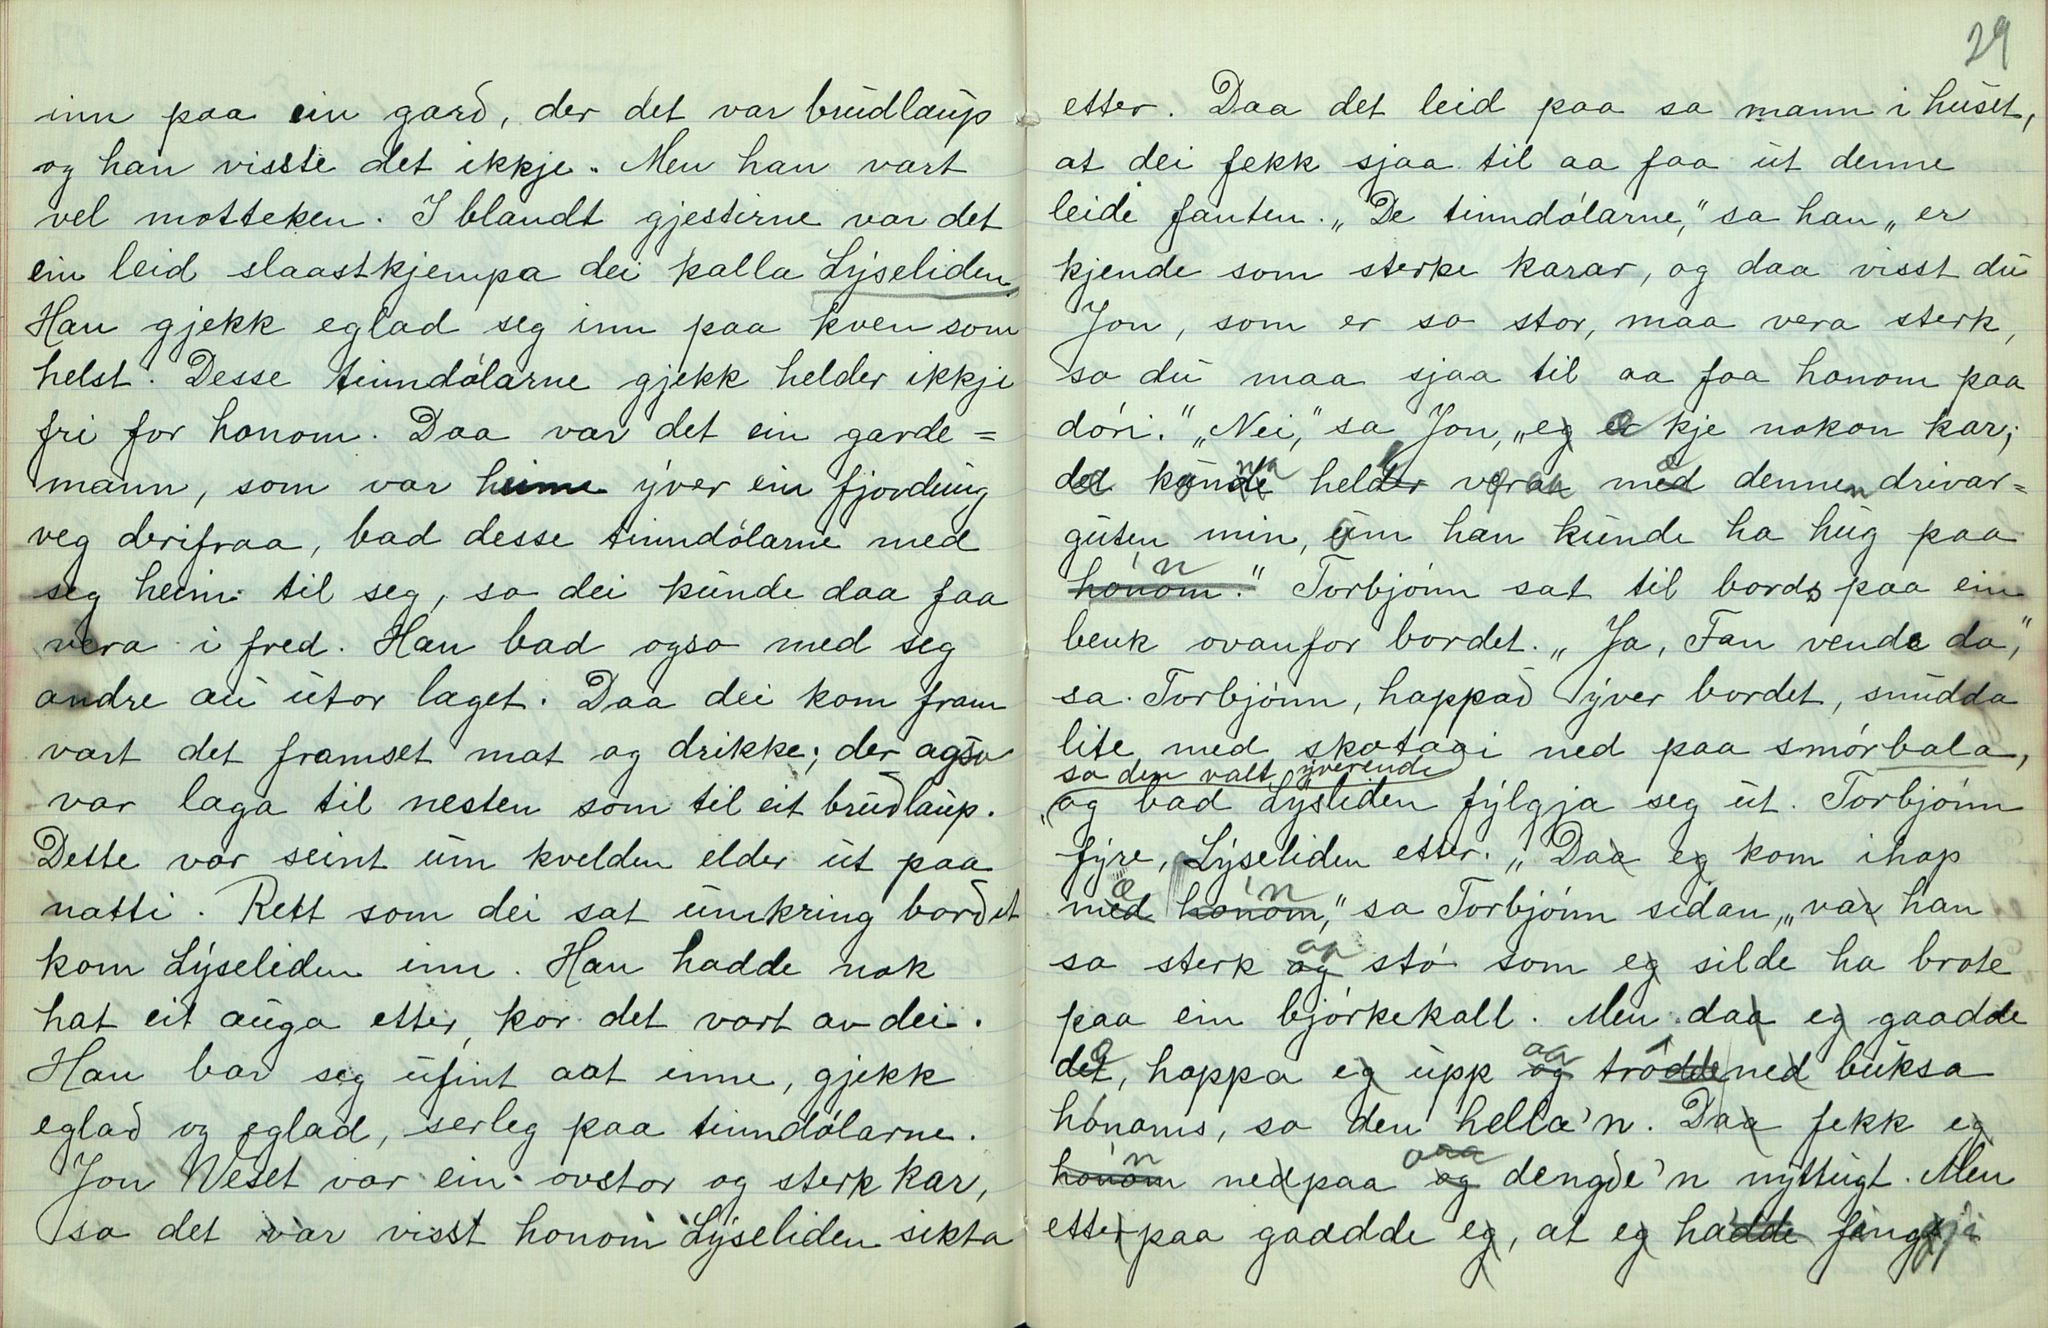 inn paa ein gard, der det var brudlaup
og han visste det ikkje. Men han vart
vel motteken. I blandt gjestirne var det
ein leid slaastkjempa dei kalla Lýseliden.
Han gjekk eglad seg inn paa kven som
helst. Desse tinndólarne gjekk helder ikkje
fri for honom. Daa var det ein garde=
mann, som var heime ýver ein fjordung
veg derifraa, bad desse tinndólarne med
seg heim til seg, so dei kunde daa faa
vera i fred. Han bad ogso med seg
andre au utor laget. Daa dei kom fram
vart det framset mat og drikke; der ogso
var laga til nesten som til eit brudlaup.
Dette var seint um kvelden elder ut paa
natti. Rett som dei sat umkring bordet
kom Lýseliden inn. Han hadde nok
hat eit auga etter, kor det vart av dei.
Han bar seg ufint aat inne, gjekk
eglad og eglad, serleg paa tinndólarne.
Jon Neset var ein ovstor og sterk kar,
so det var visst honom Lýseliden sikta
29
etter. Daa det leid paa sa mann i huset,
at dei fekk sjaa til aa faa ut denne
leide fanten. „De tinndólarne," sa han „er
kjende som sterke karar, og daa visst du
Jon, som er so stor, maa vera sterk,
so du maa sjaa til aa faa honom paa
dóri." „Nei," sa Jon, „eg er kje nokon kar;
det kunde helder vera med dennen drivar=
guten min, um han kunde ha hug paa
'n
honom." Torbjónn sat til bords paa ein
benk ovanfor bordet. „Ja, Fan vende da,"
sa Torbjónn, happad ýver bordet, snudda
lite med skotaai ned paa smórbala,
so den valt ýverende
og bad Lýsliden fýlgja seg ut. Torbjónn
fýre, Lýseliden etter. „Daa eg kom ihop
'n
med honom," sa Torbjónn sidan, „var han
aa
so sterk og stó som eg silde ha brote
paa ein bjórkekall. Men daa eg gaadde
aa
det, hoppa eg upp og tródde ned buksa
hónoms, so den hella'n. Daa fekk eg
'n
honom nedpaa og dengde'n nýttugt. Men
etterpaa gaadde eg, at eg hadde